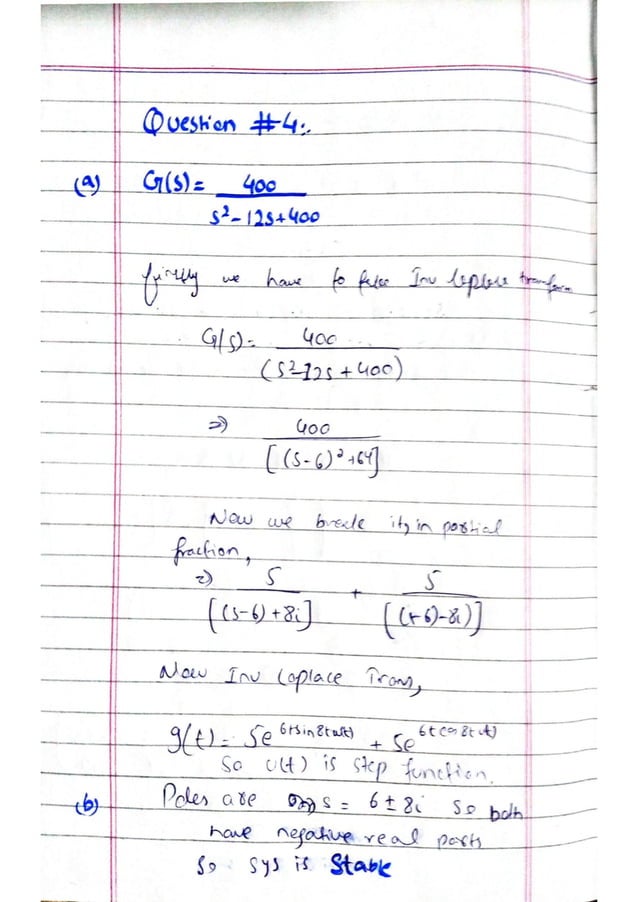 Question #4:.
(a) G(s) = 400
s²-12s+400
firstly we have to Inv transform
G(s) = 400
(s²-12s+400)
⇒ 400
[(s-6)²+64]
Now we break it, in partial
fraction,
⇒ 5 + 5
[(s-6)+8i] [(s-6)-8i)]
Now Inv Laplace Trans,
g(t) = 5e^6t sin8t u(t) + 5e^6t cos8t u(t)
So u(t) is step function.
(b) Poles are s = 6 ± 8i so both
have negative real parts
So sys is Stable